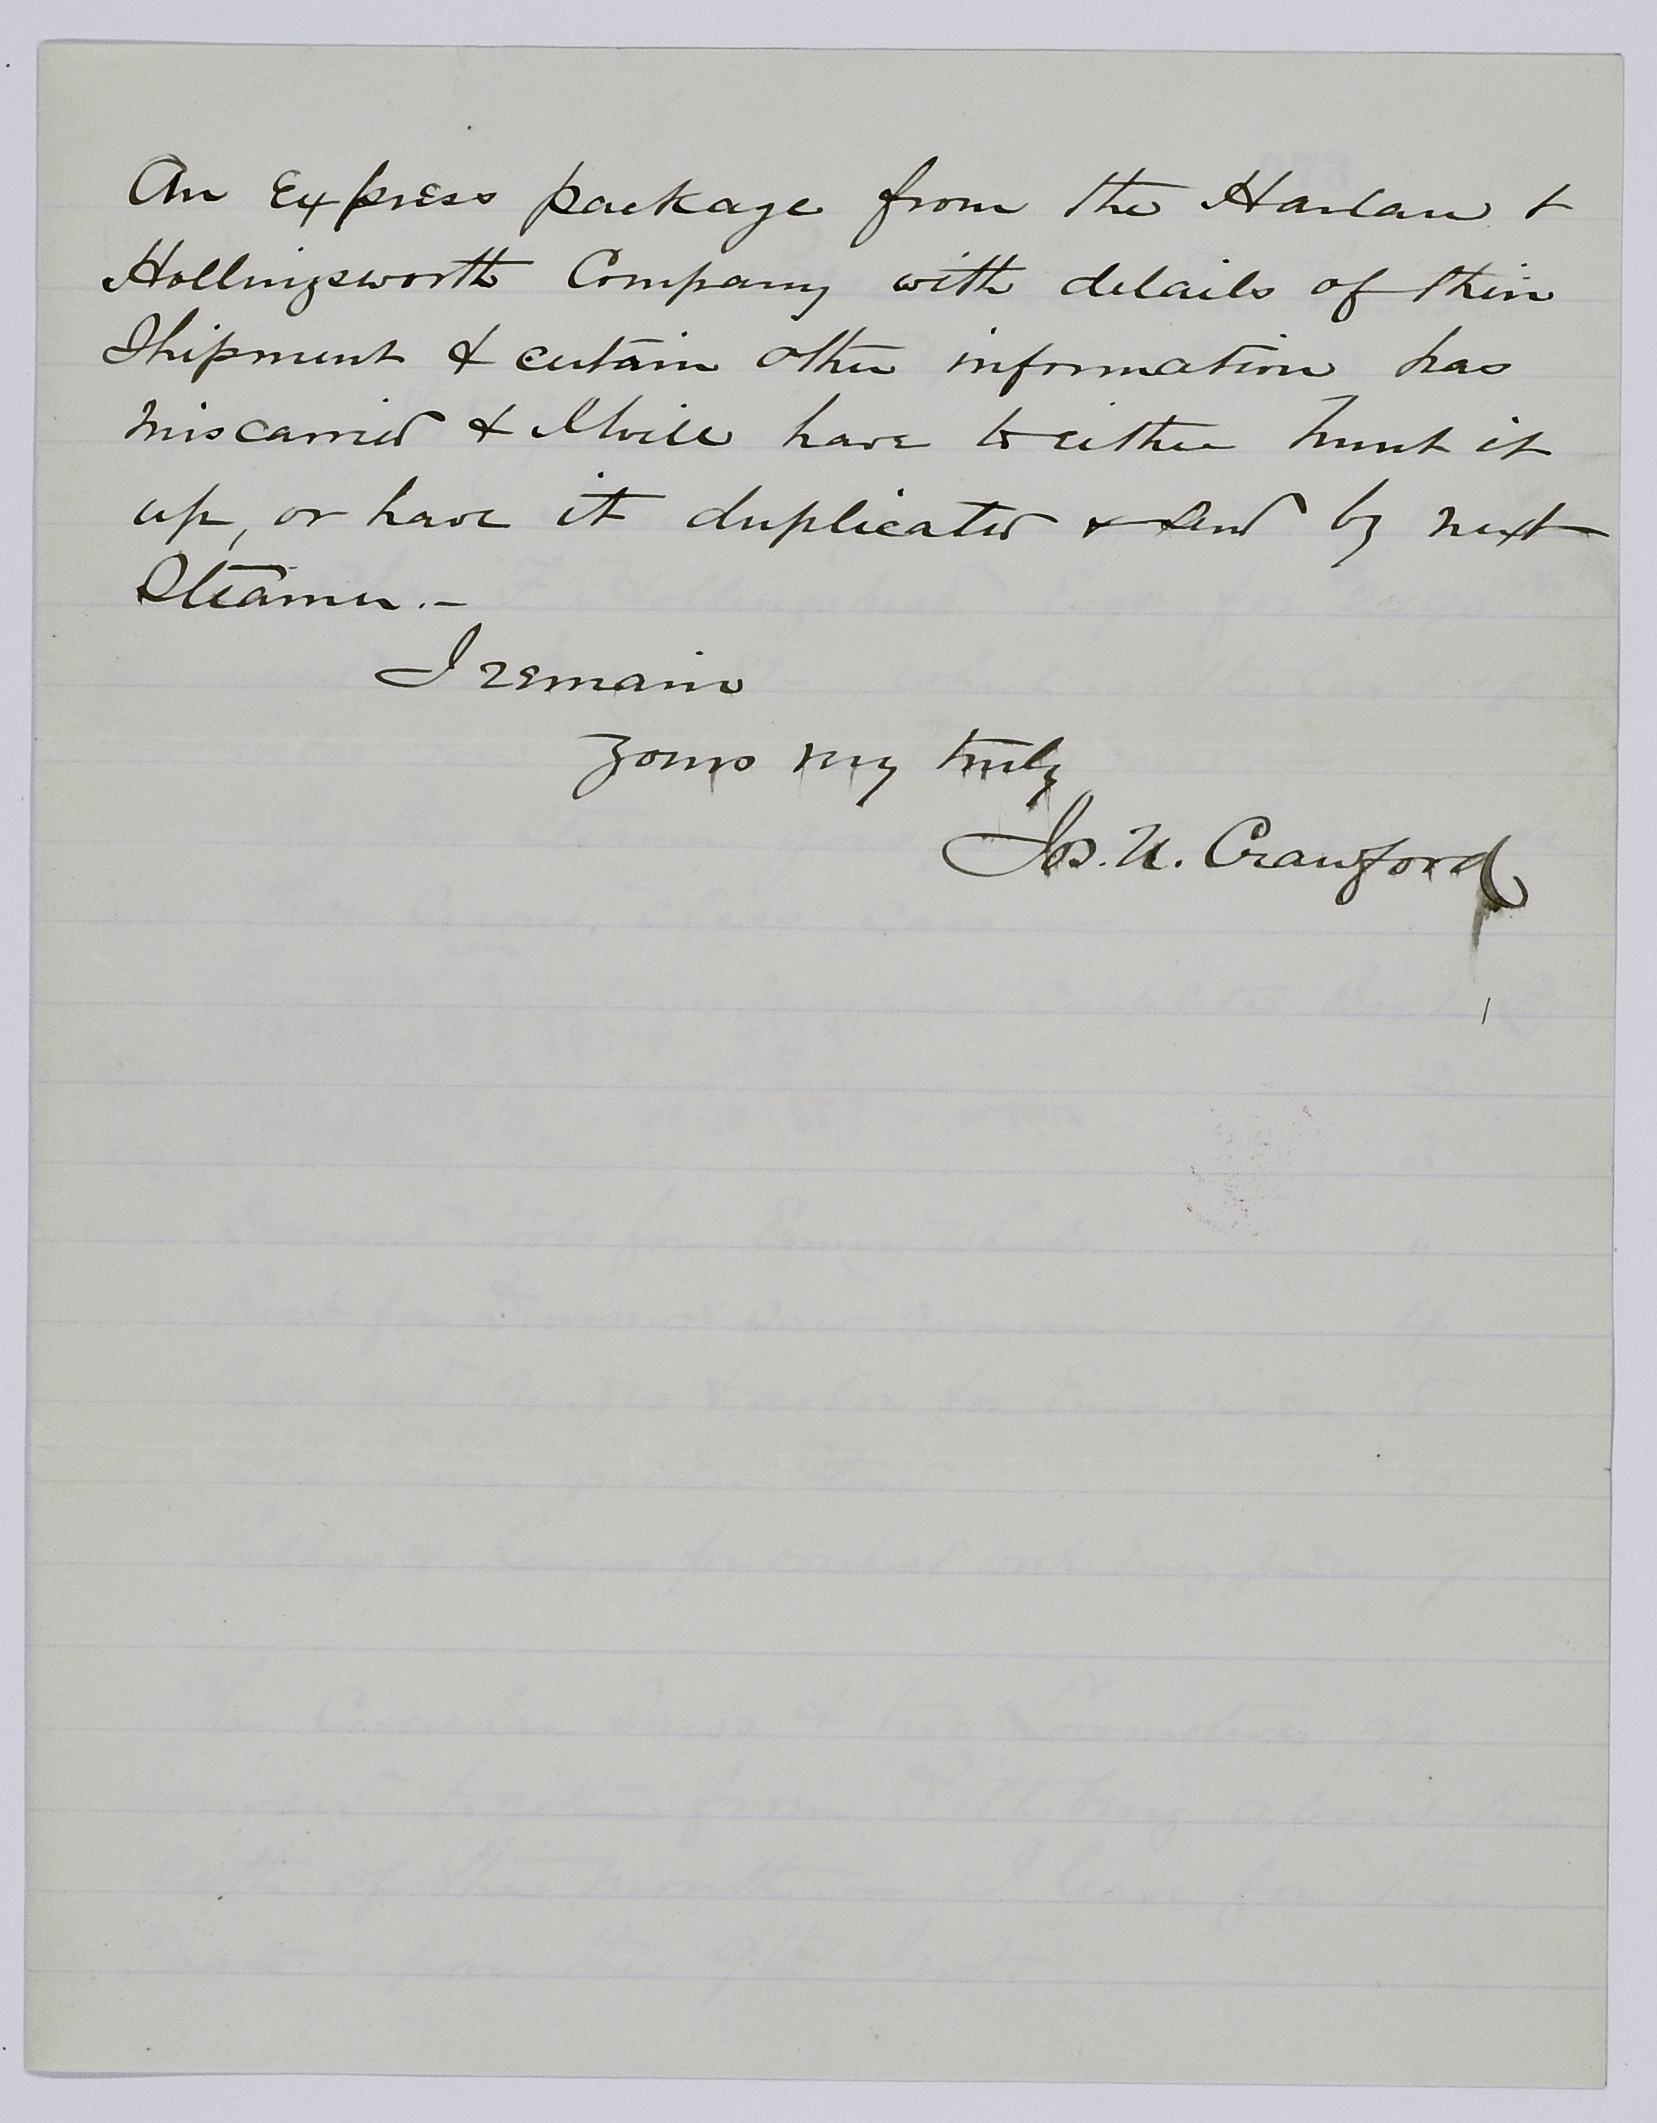 An Express package from the Harlan &
Hollingsworth Company with details of their
Shipment & certain other information has
miscarried & I will have to either hunt it
up, or have it duplicated & send by next
Steamer.—
I remain
Yours very truly
Jos. U. Crawford